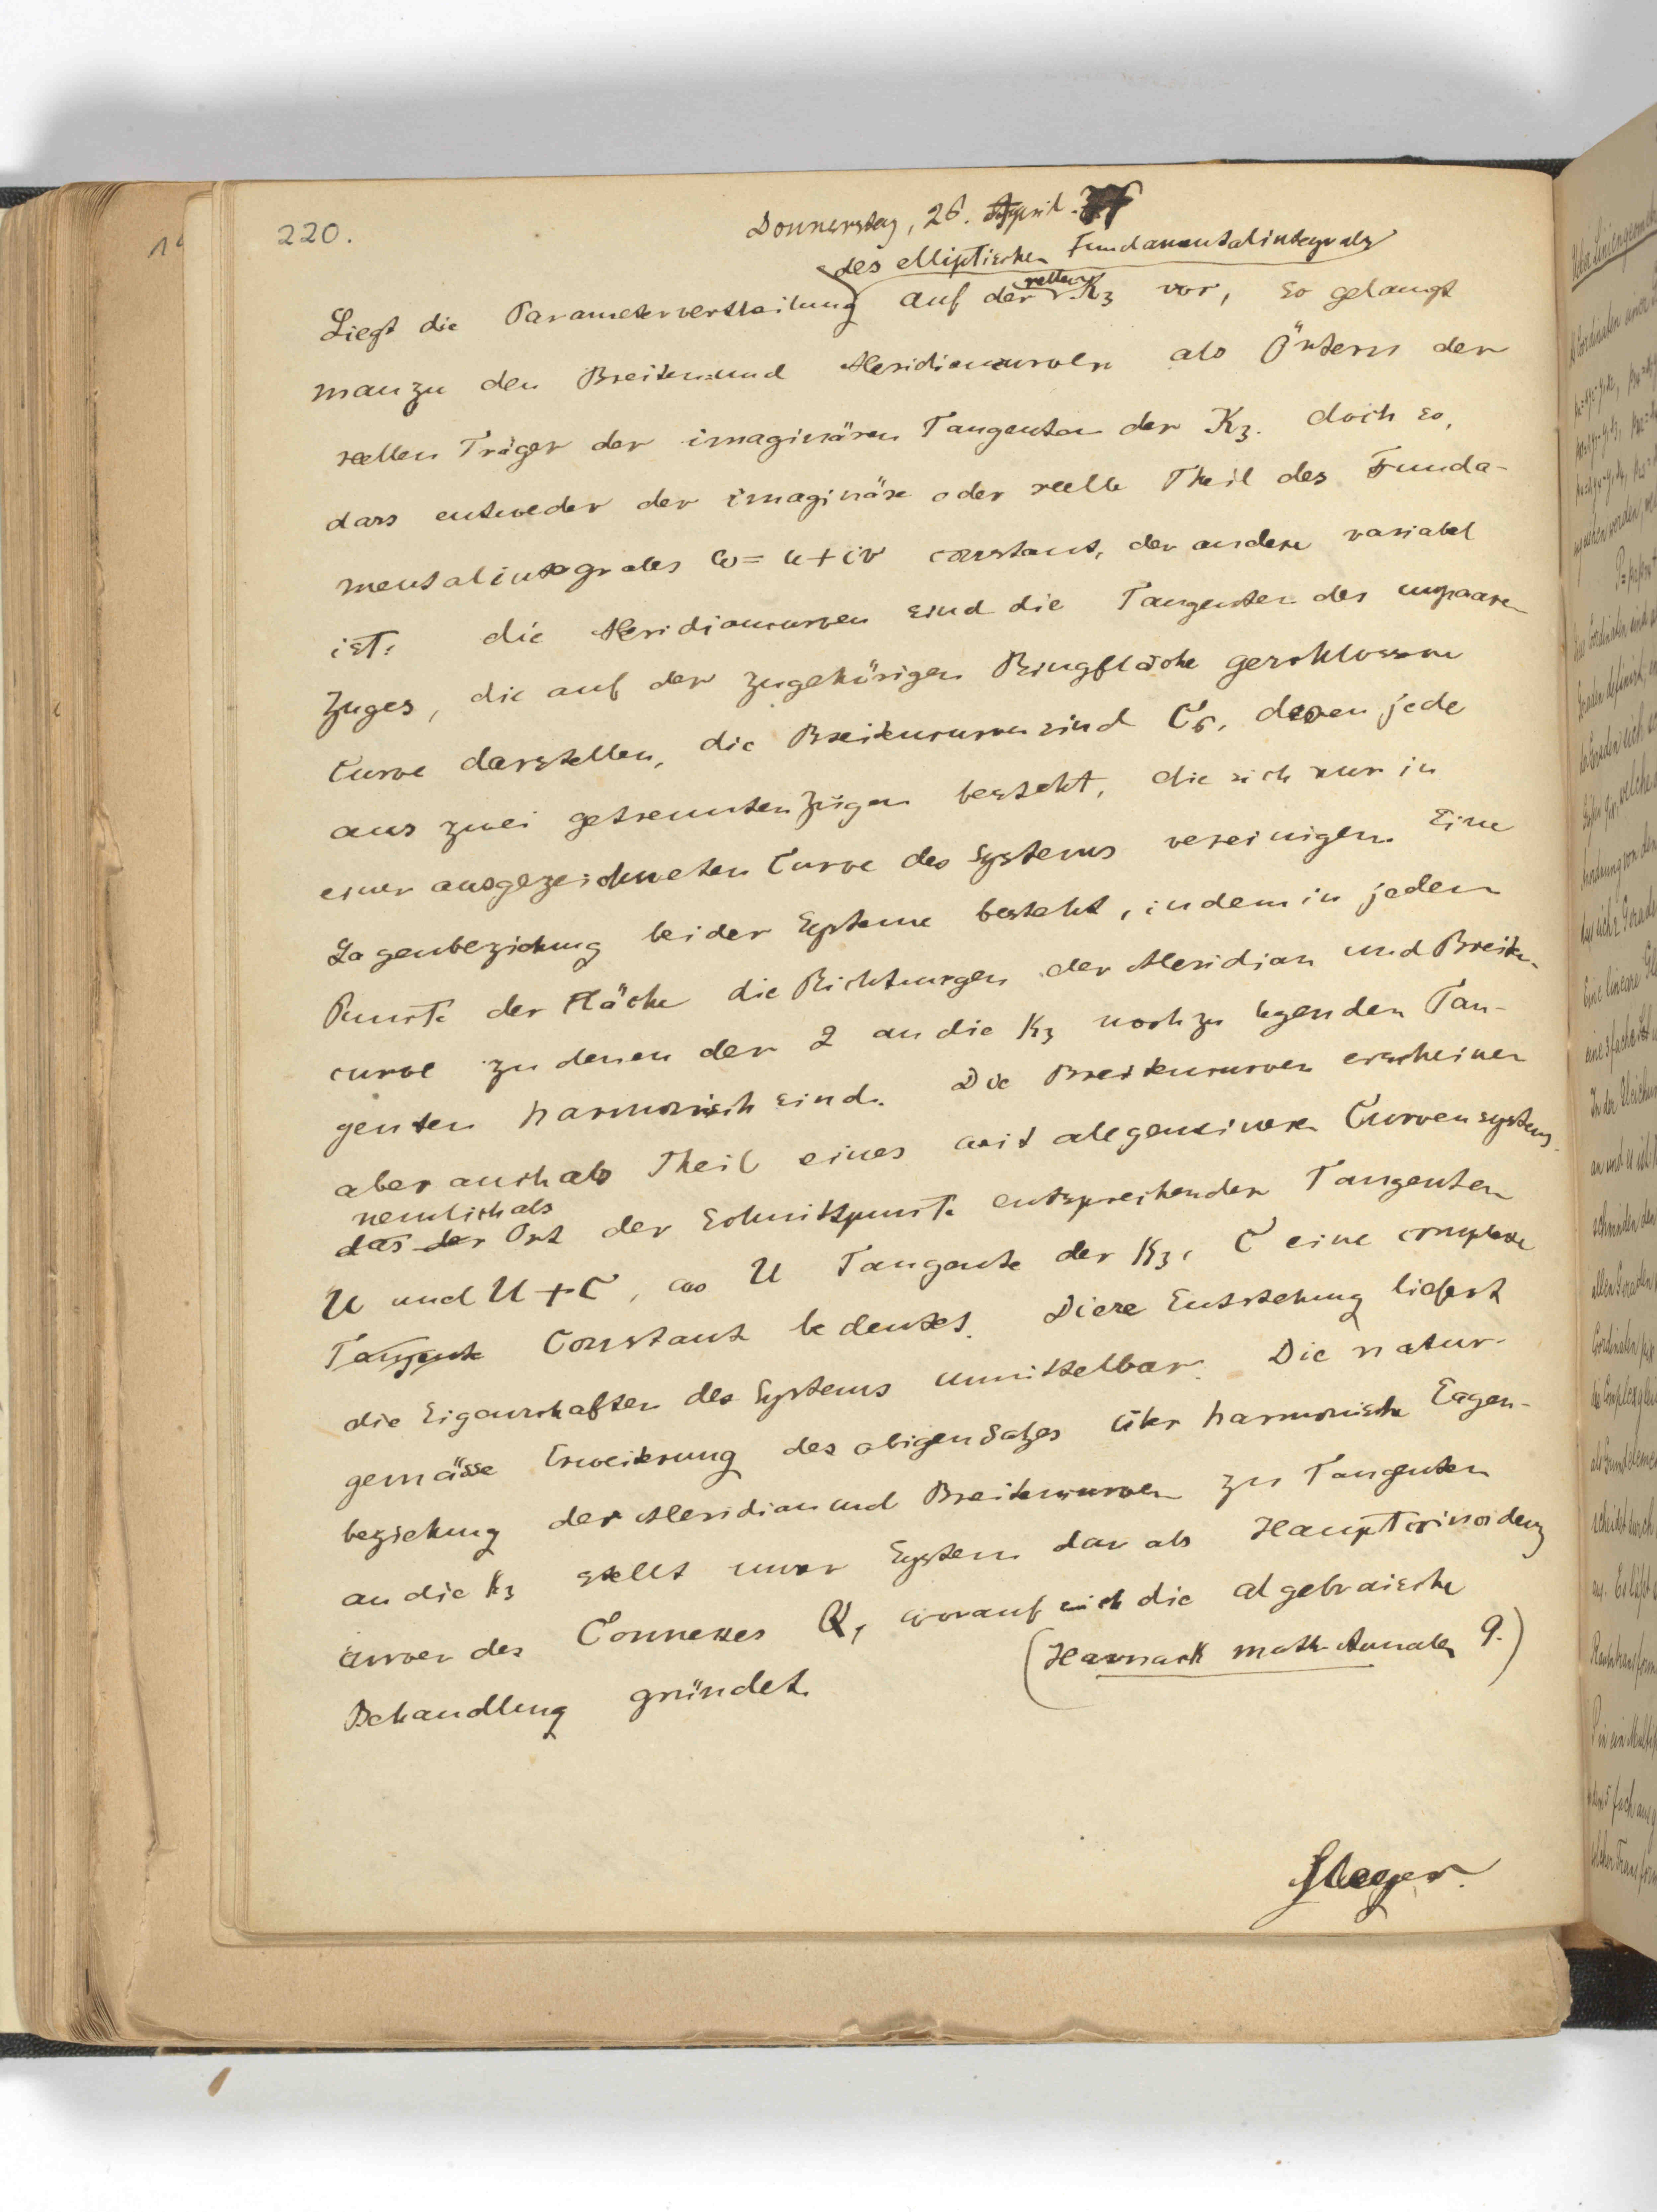 220.
Donnerstag, 26. April.
des elliptischen Fundamentalintegrals
Liegt die Parametervertheilung auf der reellen K3 vor, so gelangt
man zu den Breiten und Meridiancurven als Örtern der
reellen Träger der imaginären Tangenten der K3. doch so,
dass entweder der imaginäre oder reelle Theil des Funda-
mentalintegrales w = u + iv constant, der andere variabel
ist. die Meridiancurven sind die Tangenten des unpaaren
Zuges, die auf der zugehörigen Ringfläche geschlossene
Curve darstellen, die Breitencurven sind C6, deren jede
aus zwei getrennten Zügen besteht, die sich nur in
einer ausgezeichneten Curve des Systems vereinigen. Eine
Lagenbeziehung beider Systeme besteht, indem in jedem
Punkte der Fläche die Richtungen der Meridian und Breiten-
curve zu denen der 2 an die K3 noch zu legenden Tan-
genten harmonisch sind. Die Breitencurven erscheinen
aber auch als Theil eines weit allgemeineren Curvensystems.
nemlich als
das der Ort der Schnittpunkte entsprechender Tangenten
U und U + C, wo U Tangente der K3, C eine complexe
Tangente Constant bedeutet. Diese Entstehung liefert
die Eigenschaften des Systems unmittelbar. Die natur-
gemässe Erweiterung des obigen Satzes über harmonische Lagen-
beziehung der Meridian und Breitencurven zu Tangenten
an die K3 stellt unser System dar als Hauptcoincidenz
curven des Connexes Q, worauf sich die algebraische
Behandlung gründet.
(Harnack math Annalen 9.)